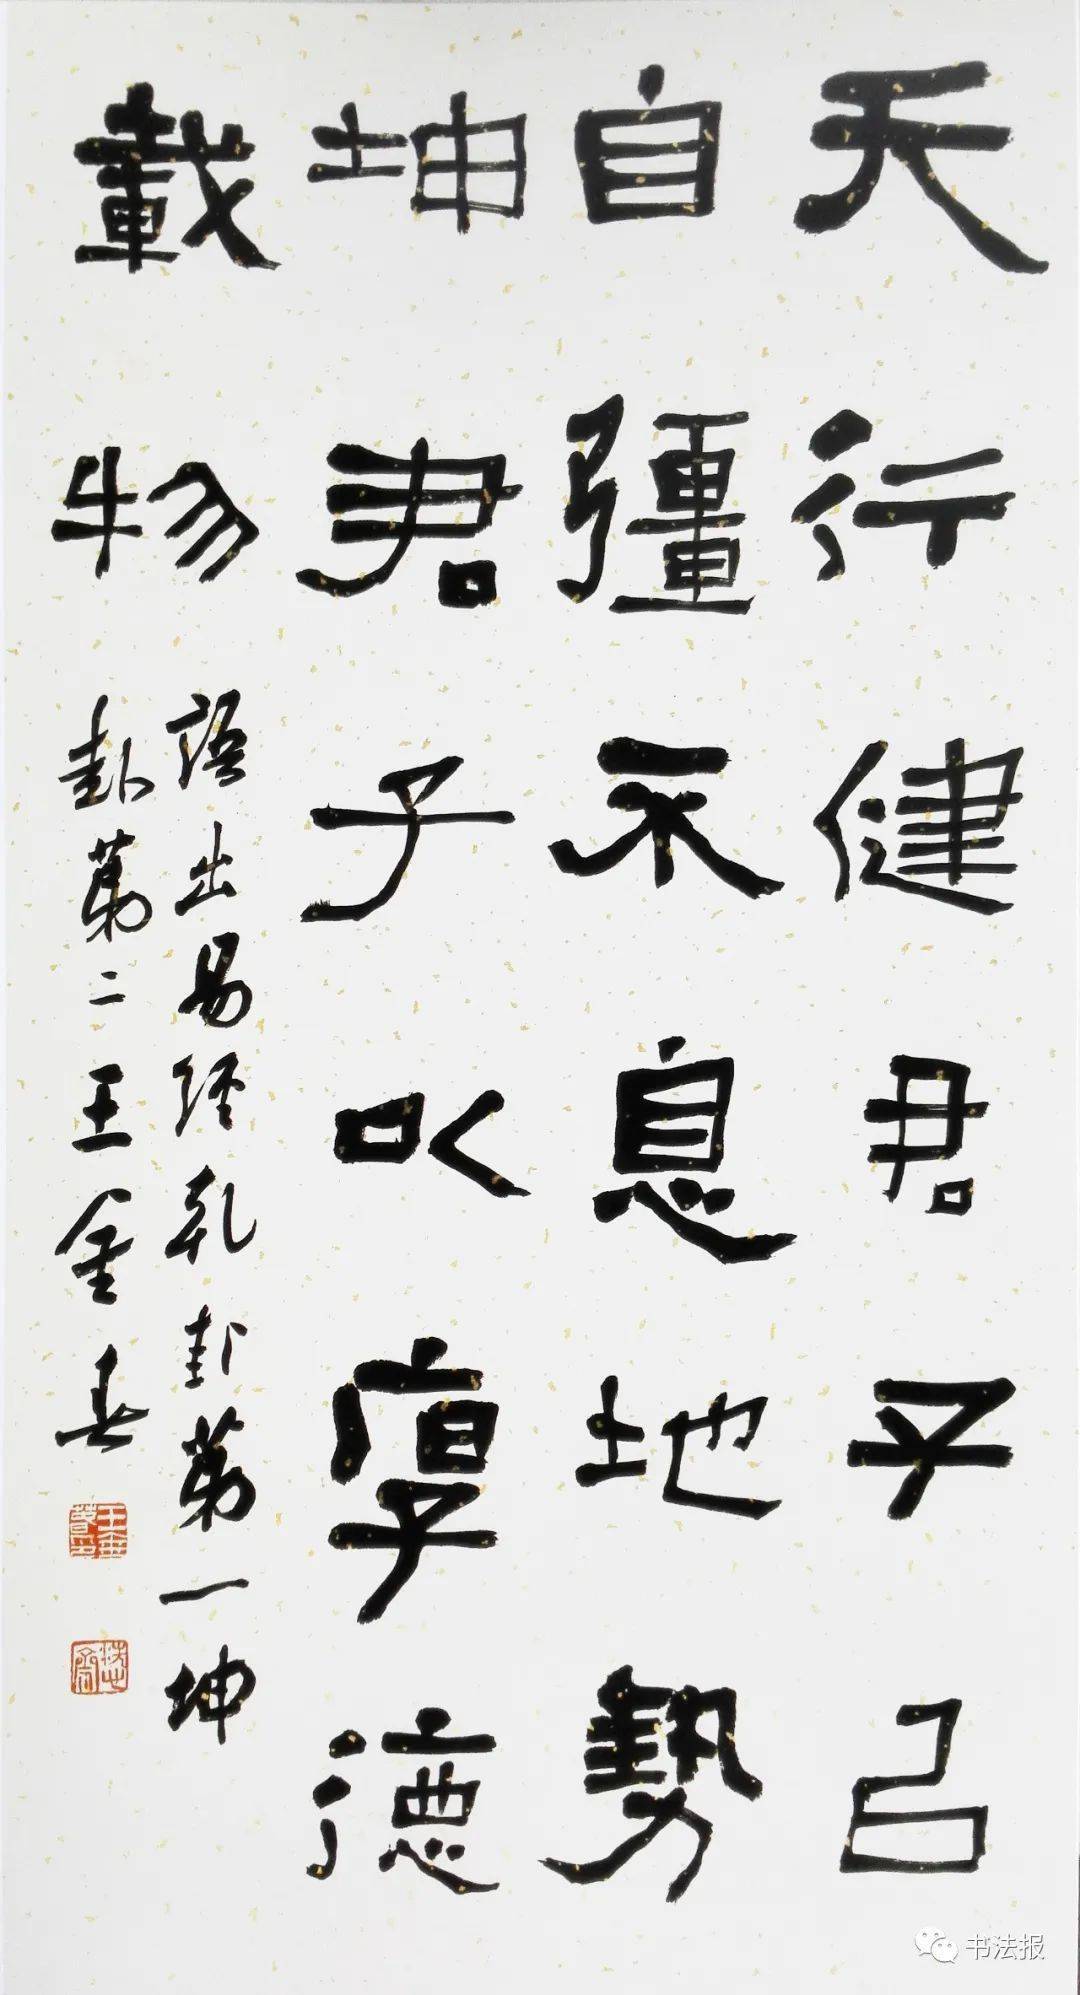 天行健君子㠯
自彊不息地勢
坤君子以厚德
載物
語出易經乾卦第一坤
卦第二王金春
书法报